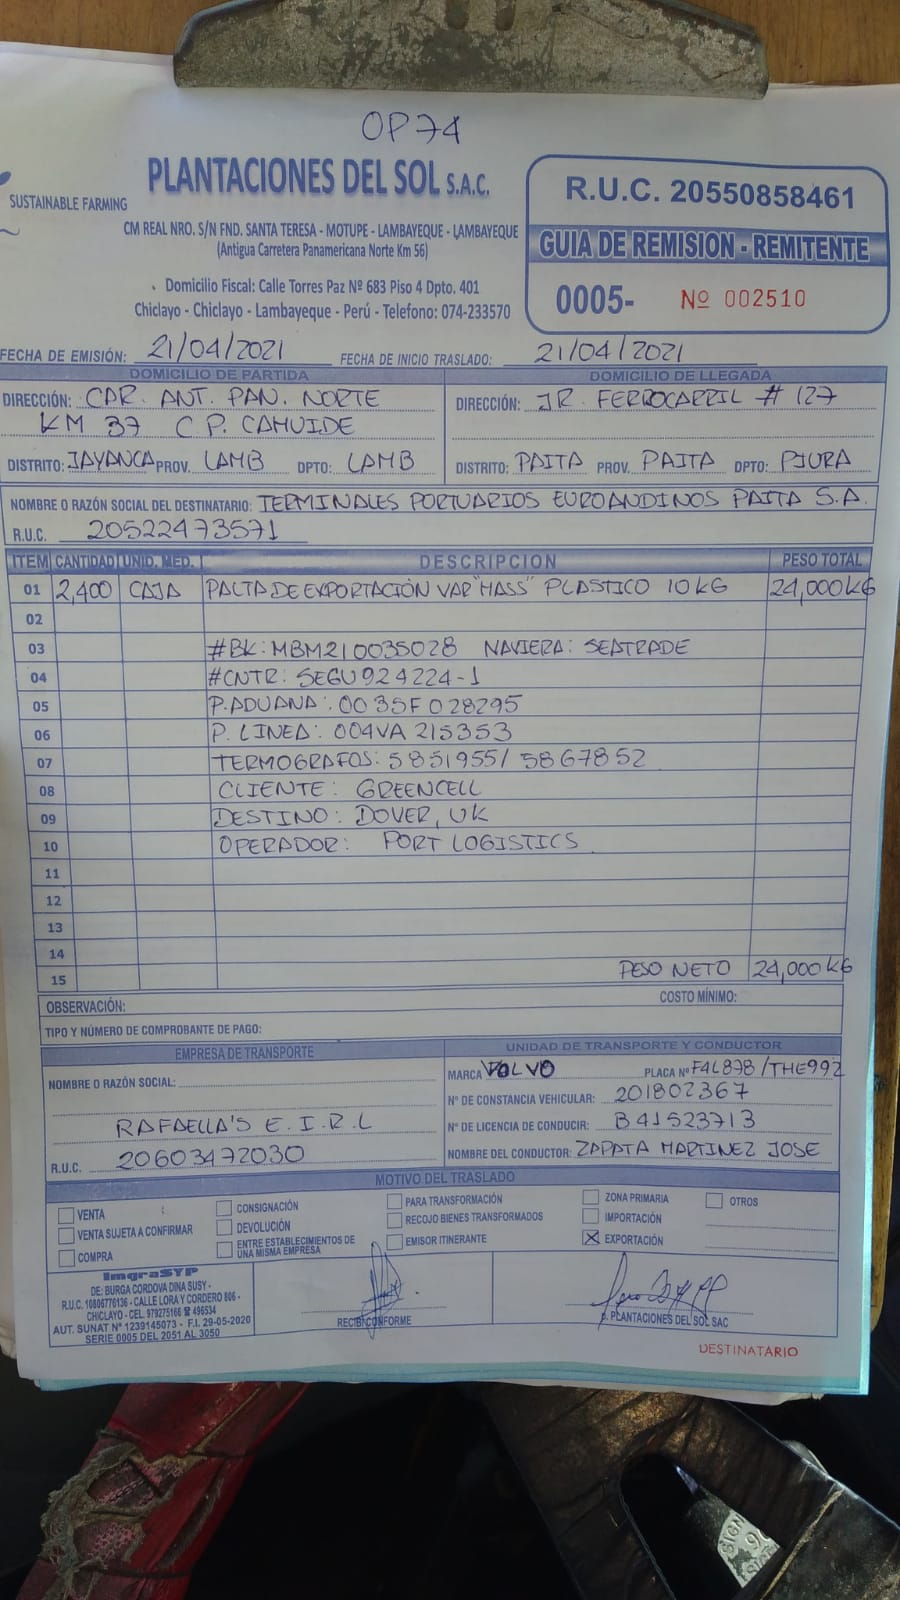 OP74
SUSTAINABLE FARMING
PLANTACIONES DEL SOL S.A.C.
CM REAL NRO. S/N FND. SANTA TERESA - MOTUPE - LAMBAYEQUE - LAMBAYEQUE
(Antigua Carretera Panamericana Norte Km 56)
Domicilio Fiscal: Calle Torres Paz Nº 683 Piso 4 Dpto. 401
Chiclayo - Chiclayo - Lambayeque - Perú - Telefono: 074-233570
R.U.C. 20550858461
GUIA DE REMISION - REMITENTE
0005- Nº 002510
FECHA DE EMISIÓN: 21/04/2021 FECHA DE INICIO TRASLADO: 21/04/2021
DOMICILIO DE PARTIDA
DIRECCIÓN: CAR. ANT. PAN. NORTE
KM 37 C.P. CAHUIDE
DISTRITO: JAYANCA PROV. LAMB DPTO: LAMB
DOMICILIO DE LLEGADA
DIRECCIÓN: JR. FERROCARRIL # 127
DISTRITO: PAITA PROV. PAITA DPTO: PIURA
NOMBRE O RAZÓN SOCIAL DEL DESTINATARIO: TERMINALES PORTUARIOS EUROANDINOS PAITA S.A.
R.U.C. 20522473571
ITEM CANTIDAD UNID. MED. DESCRIPCION PESO TOTAL
01 2,400 CAJA PALTA DE EXPORTACIÓN VAR "HASS" PLASTICO 10 KG 24,000 KG
02
03 #BK: MBM210035028 NAVIERA: SEATRADE
04 #CNTR: SEGU924224-1
05 P. ADUANA: 0035F028295
06 P. LINEA: 004VA 215353
07 TERMOGRAFOS: 5851955/ 5867852
08 CLIENTE: GREENCELL
09 DESTINO: DOVER, UK
10 OPERADOR: PORT LOGISTICS
11
12
13
14
15 PESO NETO 24,000 KG
OBSERVACIÓN: COSTO MÍNIMO:
TIPO Y NÚMERO DE COMPROBANTE DE PAGO:
EMPRESA DE TRANSPORTE
NOMBRE O RAZÓN SOCIAL:
RAFAELLA'S E.I.R.L
R.U.C. 20603472030
UNIDAD DE TRANSPORTE Y CONDUCTOR
MARCA VOLVO PLACA Nº F4L878/THE992
Nº DE CONSTANCIA VEHICULAR: 201802367
Nº DE LICENCIA DE CONDUCIR: B41523713
NOMBRE DEL CONDUCTOR: ZAPATA MARTINEZ JOSE
MOTIVO DEL TRASLADO
VENTA
VENTA SUJETA A CONFIRMAR
COMPRA
CONSIGNACIÓN
DEVOLUCIÓN
ENTRE ESTABLECIMIENTOS DE
UNA MISMA EMPRESA
PARA TRANSFORMACIÓN
RECOJO BIENES TRANSFORMADOS
EMISOR ITINERANTE
ZONA PRIMARIA
IMPORTACIÓN
EXPORTACIÓN
OTROS
ImgraSYP
DE: BURGA CORDOVA DINA SUSY -
R.U.C. 10806776136 - CALLE LORA Y CORDERO 806 -
CHICLAYO - CEL. 979275166 ☎ 496534
AUT. SUNAT Nº 1239145073 - F.I. 29-05-2020
SERIE 0005 DEL 2051 AL 3050
RECIBI CONFORME
p. PLANTACIONES DEL SOL SAC
DESTINATARIO